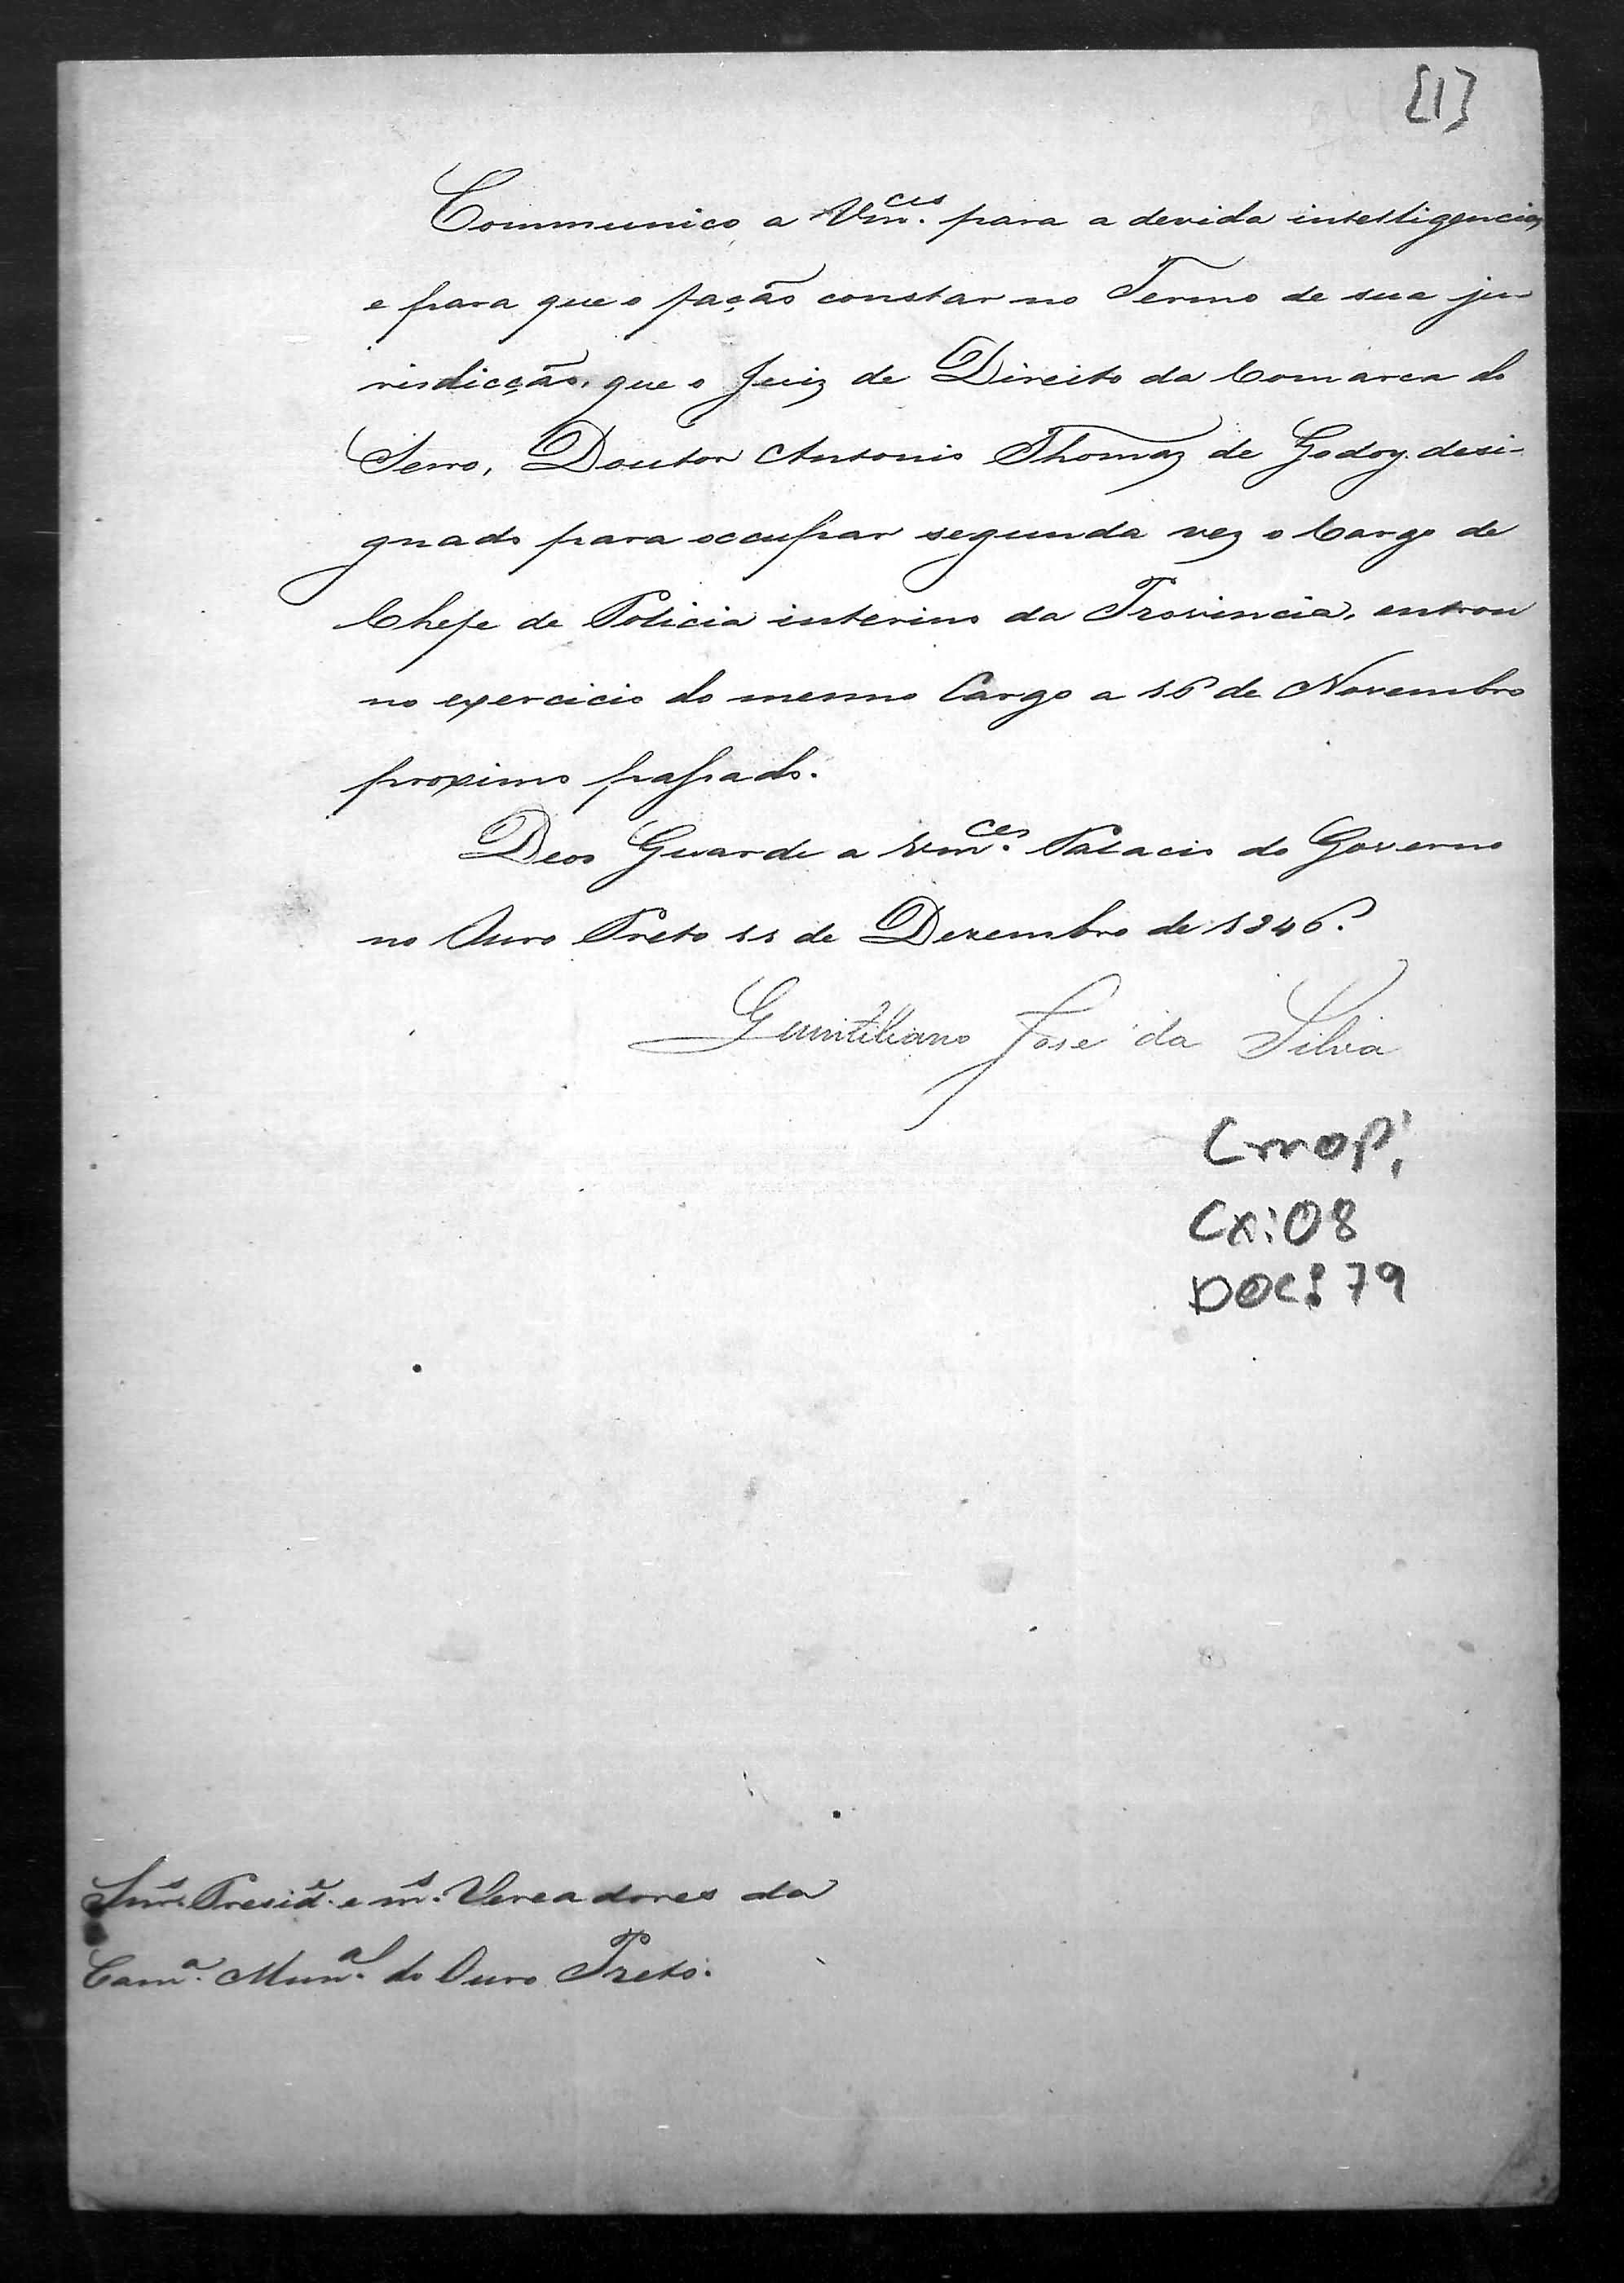 [1]
Communico a Vm.ces para a devida intelligencia,
e para que o fação constar no Termo de sua ju
risdicção, que o Juiz de Direito da Comarca do
Serro, Doutor Antonio Thomaz de Godoy desi-
gnado para occupar segunda vez o Cargo de
Chefe de Policia interino da Provincia, entrou
no exercicio do mesmo Cargo a 16 de Novembro
proximo passado.
Deos Guarde a Vm.ces Palacio do Governo
no Ouro Preto 11 de Dezembro de 1846.
Quintiliano José da Silva
CMOP:
CX: 08
DOC: 79
Snr.s Presid.e e m.s Vereadores da
Cam.a Mun.al do Ouro Preto.